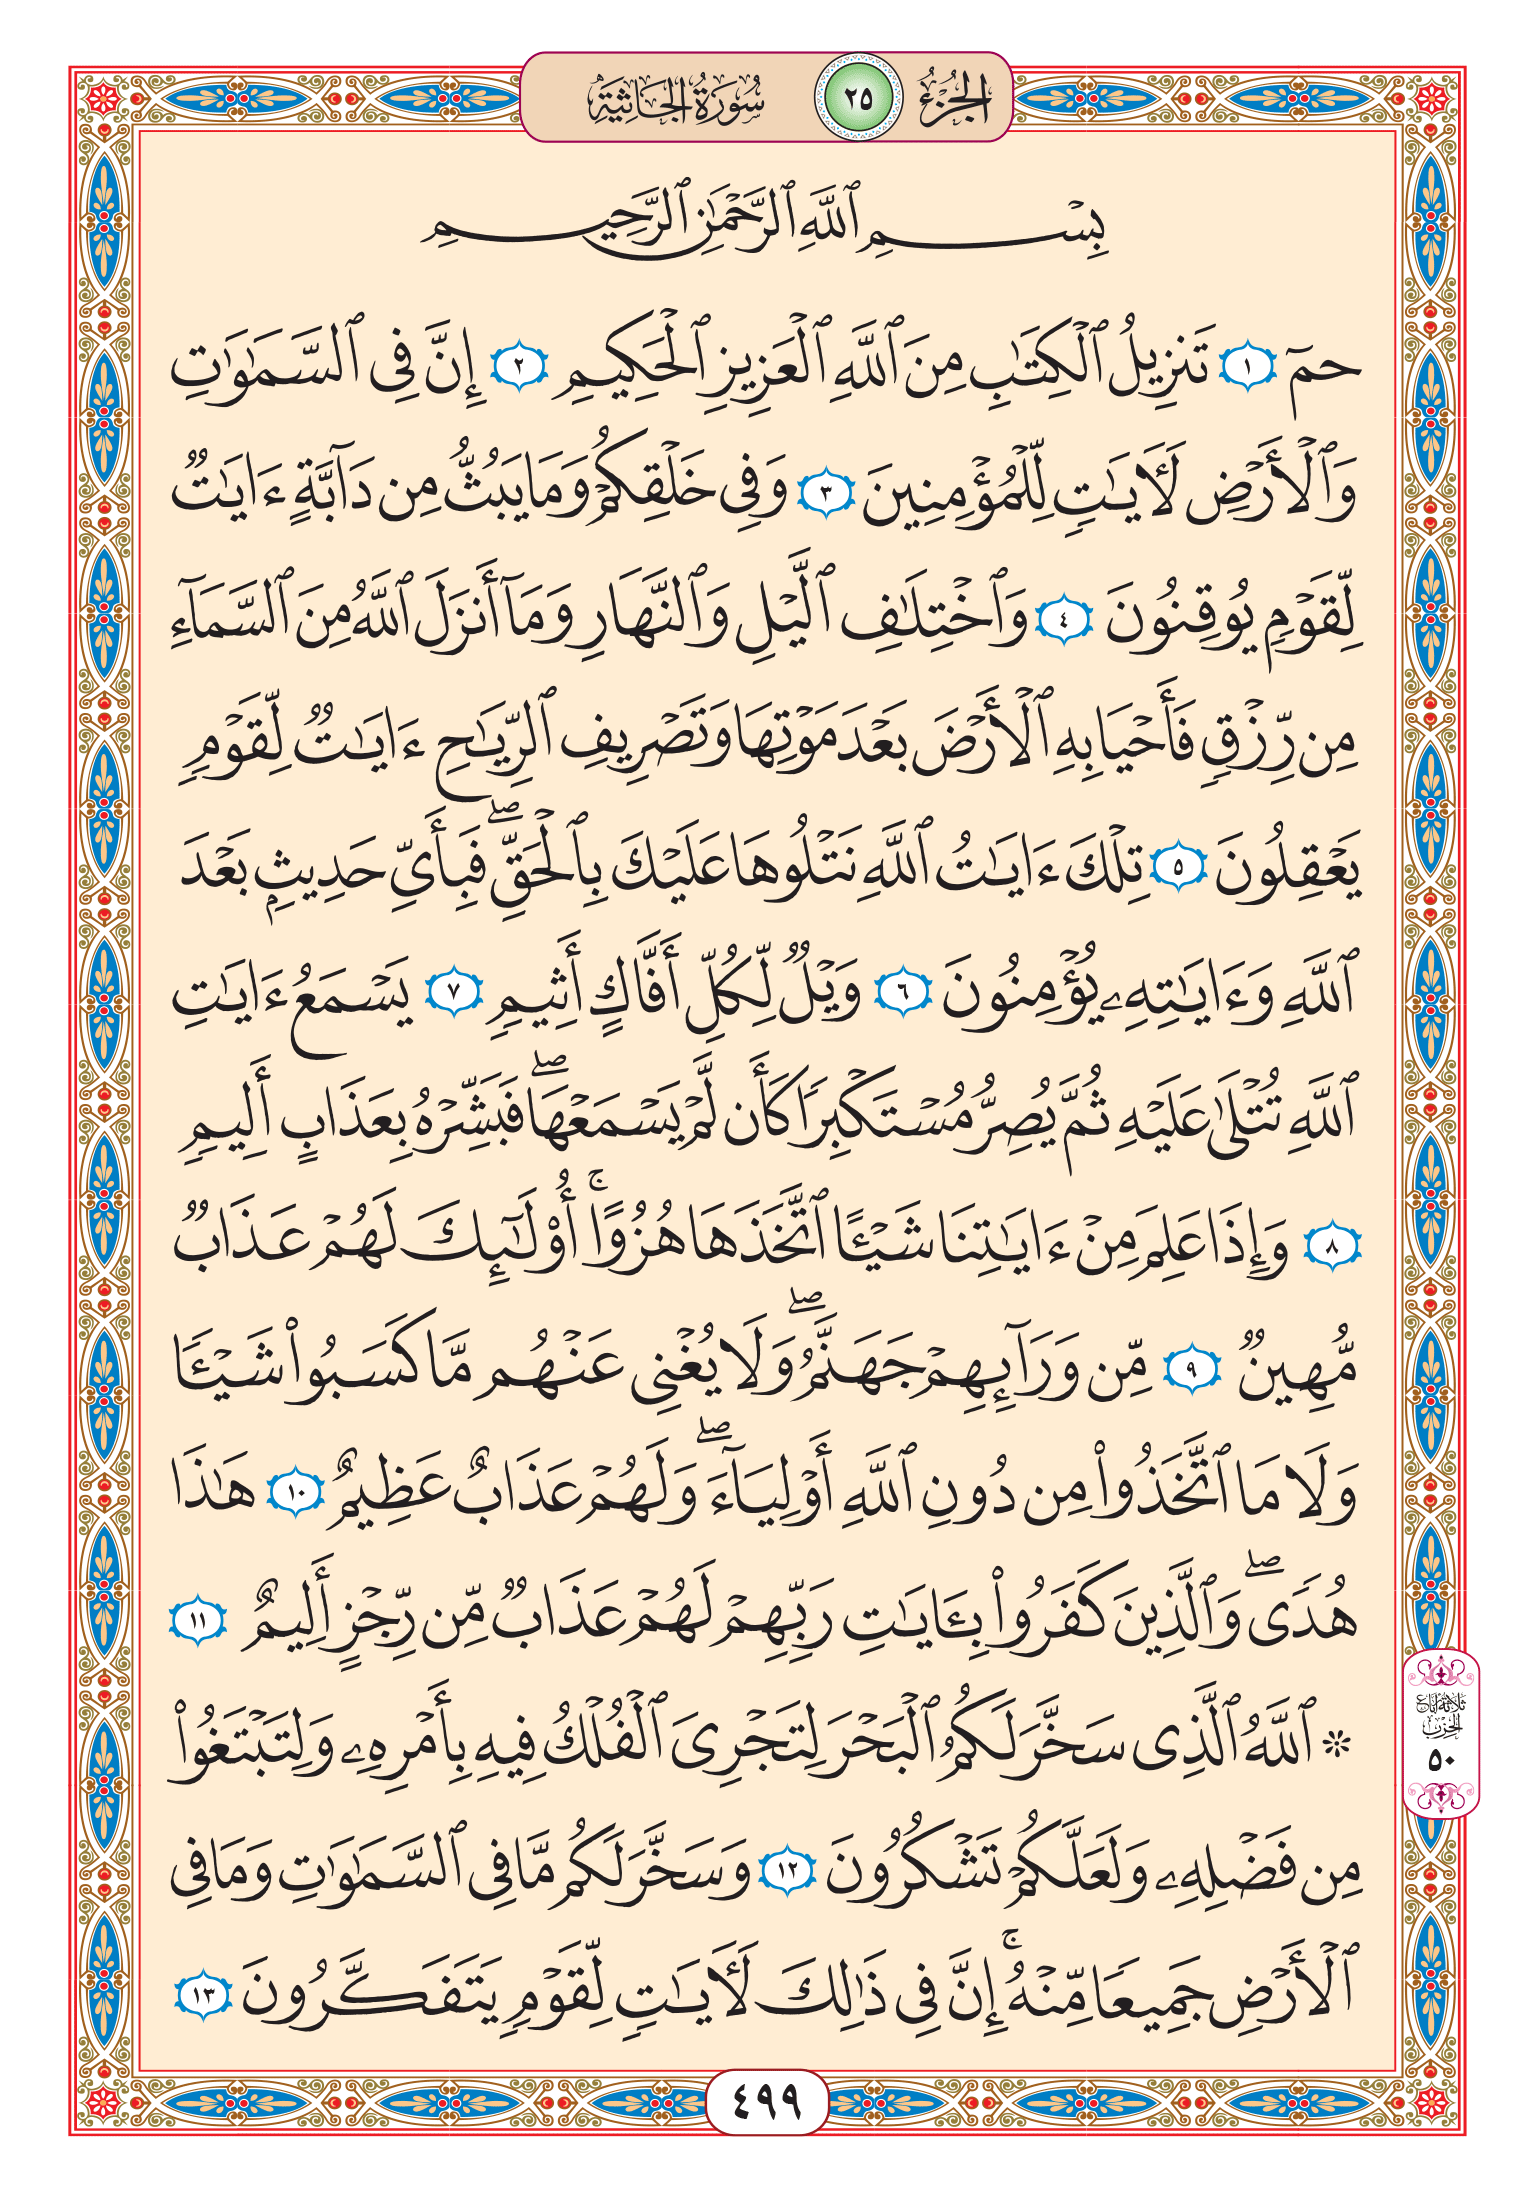 الجزء ٢٥ سورة الجاثية
بِسْمِ ٱللَّهِ ٱلرَّحْمَٰنِ ٱلرَّحِيمِ
حمٓ ١ تَنزِيلُ ٱلْكِتَٰبِ مِنَ ٱللَّهِ ٱلْعَزِيزِ ٱلْحَكِيمِ ٢ إِنَّ فِى ٱلسَّمَٰوَٰتِ
وَٱلْأَرْضِ لَءَايَٰتٍ لِّلْمُؤْمِنِينَ ٣ وَفِى خَلْقِكُمْ وَمَا يَبُثُّ مِن دَآبَّةٍ ءَايَٰتٌ
لِّقَوْمٍ يُوقِنُونَ ٤ وَٱخْتِلَٰفِ ٱلَّيْلِ وَٱلنَّهَارِ وَمَآ أَنزَلَ ٱللَّهُ مِنَ ٱلسَّمَآءِ
مِن رِّزْقٍ فَأَحْيَا بِهِ ٱلْأَرْضَ بَعْدَ مَوْتِهَا وَتَصْرِيفِ ٱلرِّيَٰحِ ءَايَٰتٌ لِّقَوْمٍ
يَعْقِلُونَ ٥ تِلْكَ ءَايَٰتُ ٱللَّهِ نَتْلُوهَا عَلَيْكَ بِٱلْحَقِّ ۖ فَبِأَىِّ حَدِيثٍۭ بَعْدَ
ٱللَّهِ وَءَايَٰتِهِۦ يُؤْمِنُونَ ٦ وَيْلٌ لِّكُلِّ أَفَّاكٍ أَثِيمٍ ٧ يَسْمَعُ ءَايَٰتِ
ٱللَّهِ تُتْلَىٰ عَلَيْهِ ثُمَّ يُصِرُّ مُسْتَكْبِرًا كَأَن لَّمْ يَسْمَعْهَا ۖ فَبَشِّرْهُ بِعَذَابٍ أَلِيمٍ
٨ وَإِذَا عَلِمَ مِنْ ءَايَٰتِنَا شَيْـًٔا ٱتَّخَذَهَا هُزُوًا ۚ أُو۟لَٰٓئِكَ لَهُمْ عَذَابٌ
مُّهِينٌ ٩ مِّن وَرَآئِهِمْ جَهَنَّمُ ۖ وَلَا يُغْنِى عَنْهُم مَّا كَسَبُوا۟ شَيْـًٔا
وَلَا مَا ٱتَّخَذُوا۟ مِن دُونِ ٱللَّهِ أَوْلِيَآءَ ۖ وَلَهُمْ عَذَابٌ عَظِيمٌ ١٠ هَٰذَا
هُدًى ۖ وَٱلَّذِينَ كَفَرُوا۟ بِـَٔايَٰتِ رَبِّهِمْ لَهُمْ عَذَابٌ مِّن رِّجْزٍ أَلِيمٌ ١١
۞ ٱللَّهُ ٱلَّذِى سَخَّرَ لَكُمُ ٱلْبَحْرَ لِتَجْرِىَ ٱلْفُلْكُ فِيهِ بِأَمْرِهِۦ وَلِتَبْتَغُوا۟
مِن فَضْلِهِۦ وَلَعَلَّكُمْ تَشْكُرُونَ ١٢ وَسَخَّرَ لَكُم مَّا فِى ٱلسَّمَٰوَٰتِ وَمَا فِى
ٱلْأَرْضِ جَمِيعًا مِّنْهُ ۚ إِنَّ فِى ذَٰلِكَ لَءَايَٰتٍ لِّقَوْمٍ يَتَفَكَّرُونَ ١٣
ثلاثة أرباع
الحزب
٥٠
٤٩٩